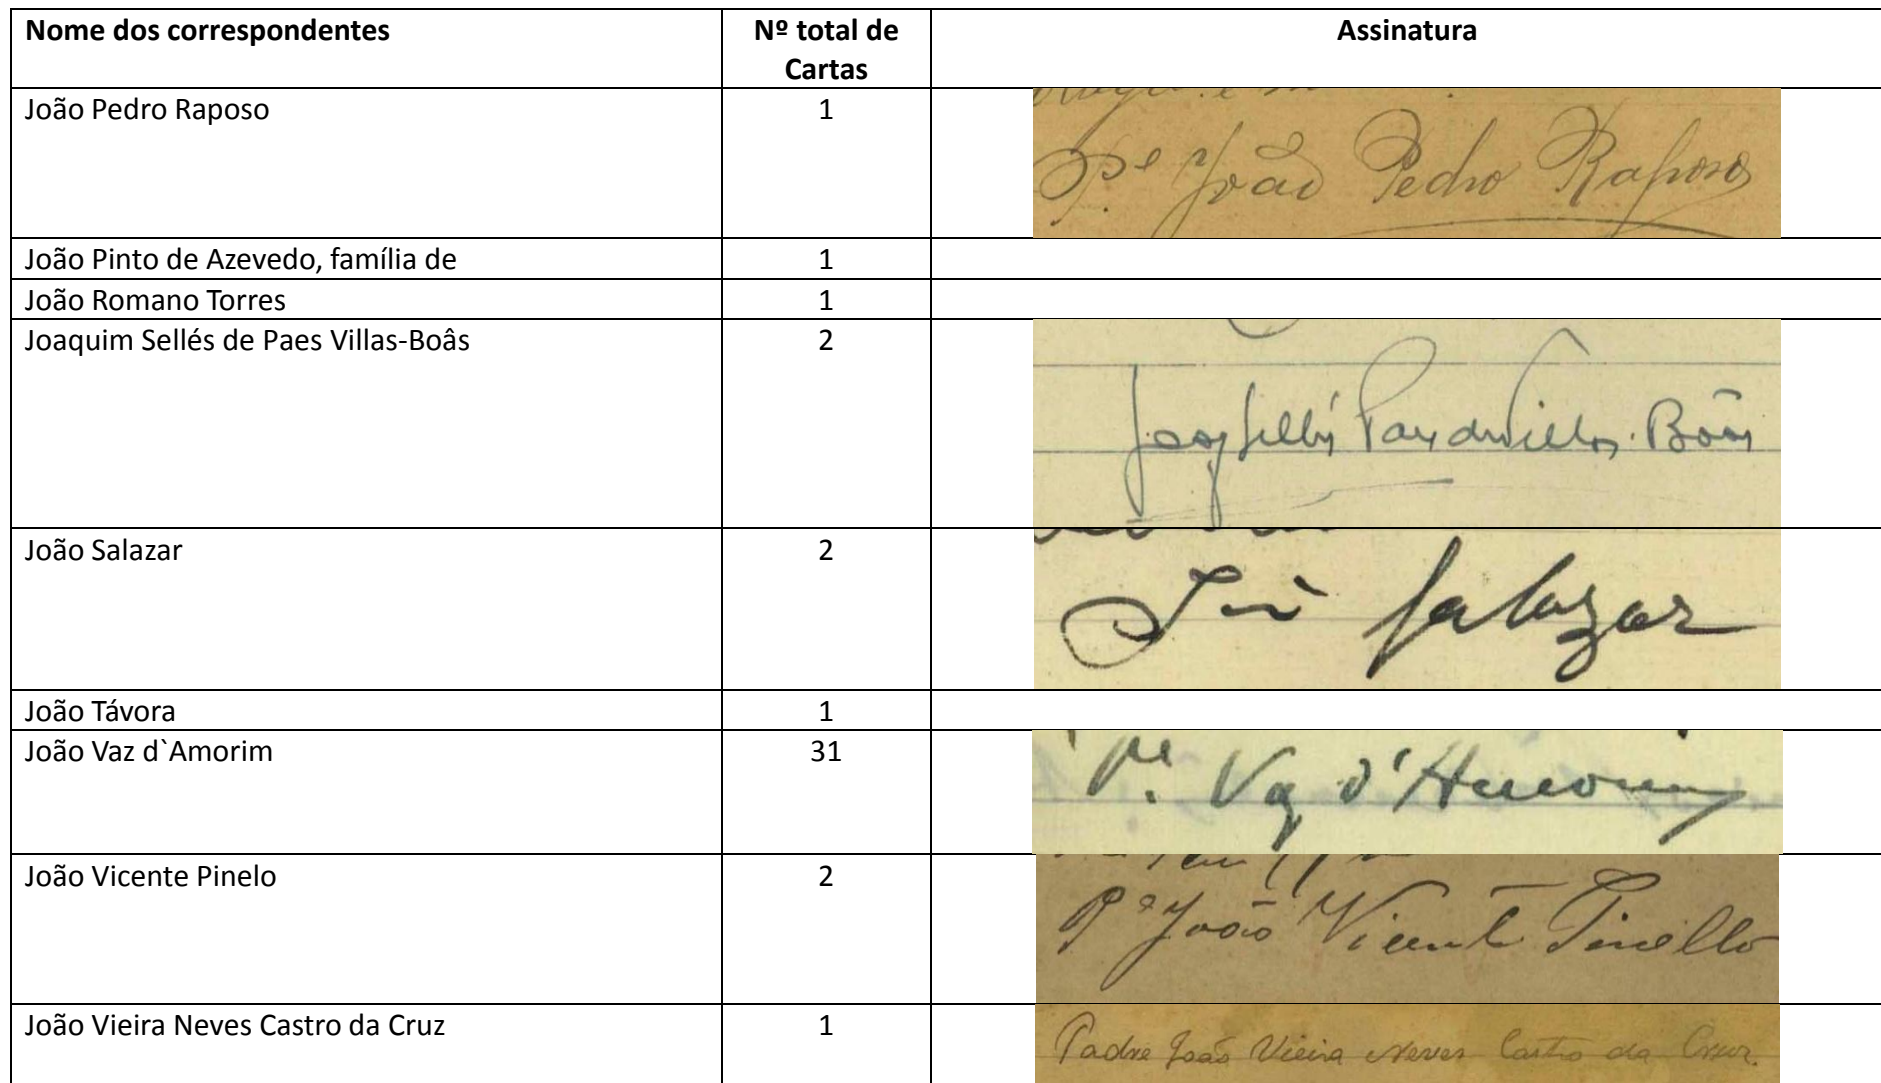 Nome dos correspondentes
Nº total de
Cartas
Assinatura
João Pedro Raposo
1
Pe João Pedro Raposo
João Pinto de Azevedo, família de
1
João Romano Torres
1
Joaquim Sellés de Paes Villas-Boâs
2
Joaq Sellés Paes de Villas-Bôas
João Salazar
2
João Salazar
João Távora
1
João Vaz d`Amorim
31
Pe. Vaz d'Amorim
João Vicente Pinelo
2
Pe João Vicente Pinello
João Vieira Neves Castro da Cruz
1
Padre João Vieira Neves Castro da Cruz.